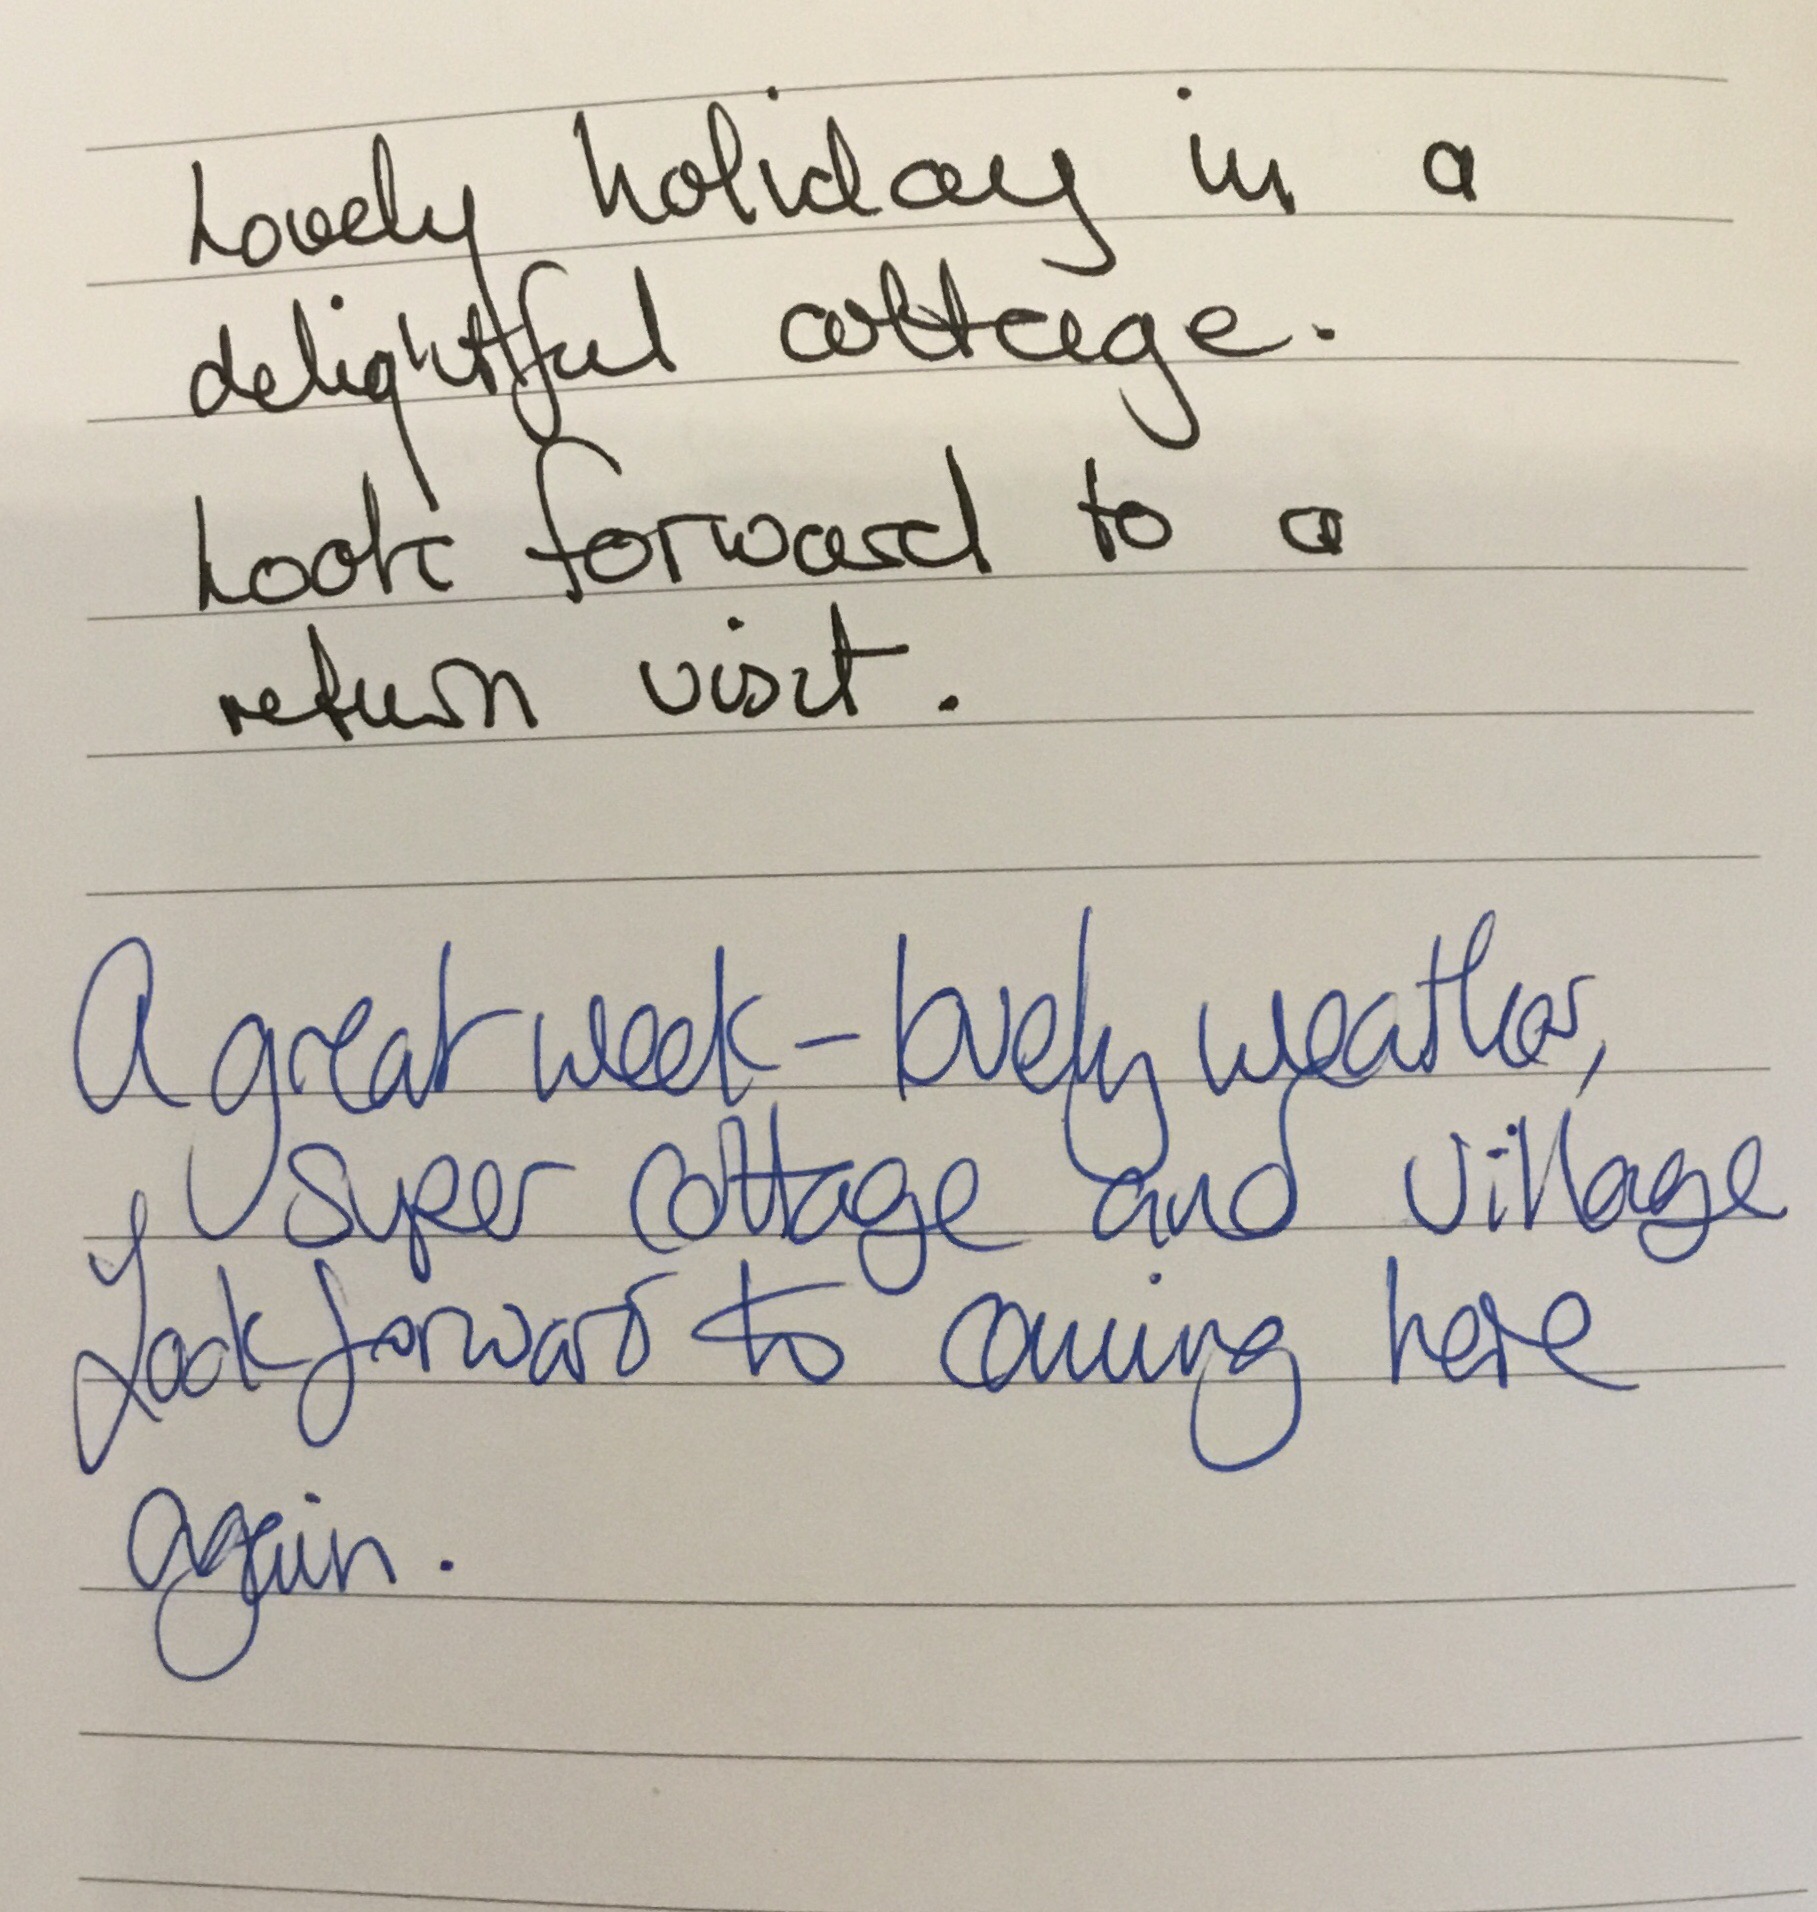 Lovely holiday in a
delightful cottage.
Look forward to a
return visit.
A great week - lovely weather,
super cottage and village
Look forward to coming here
again.